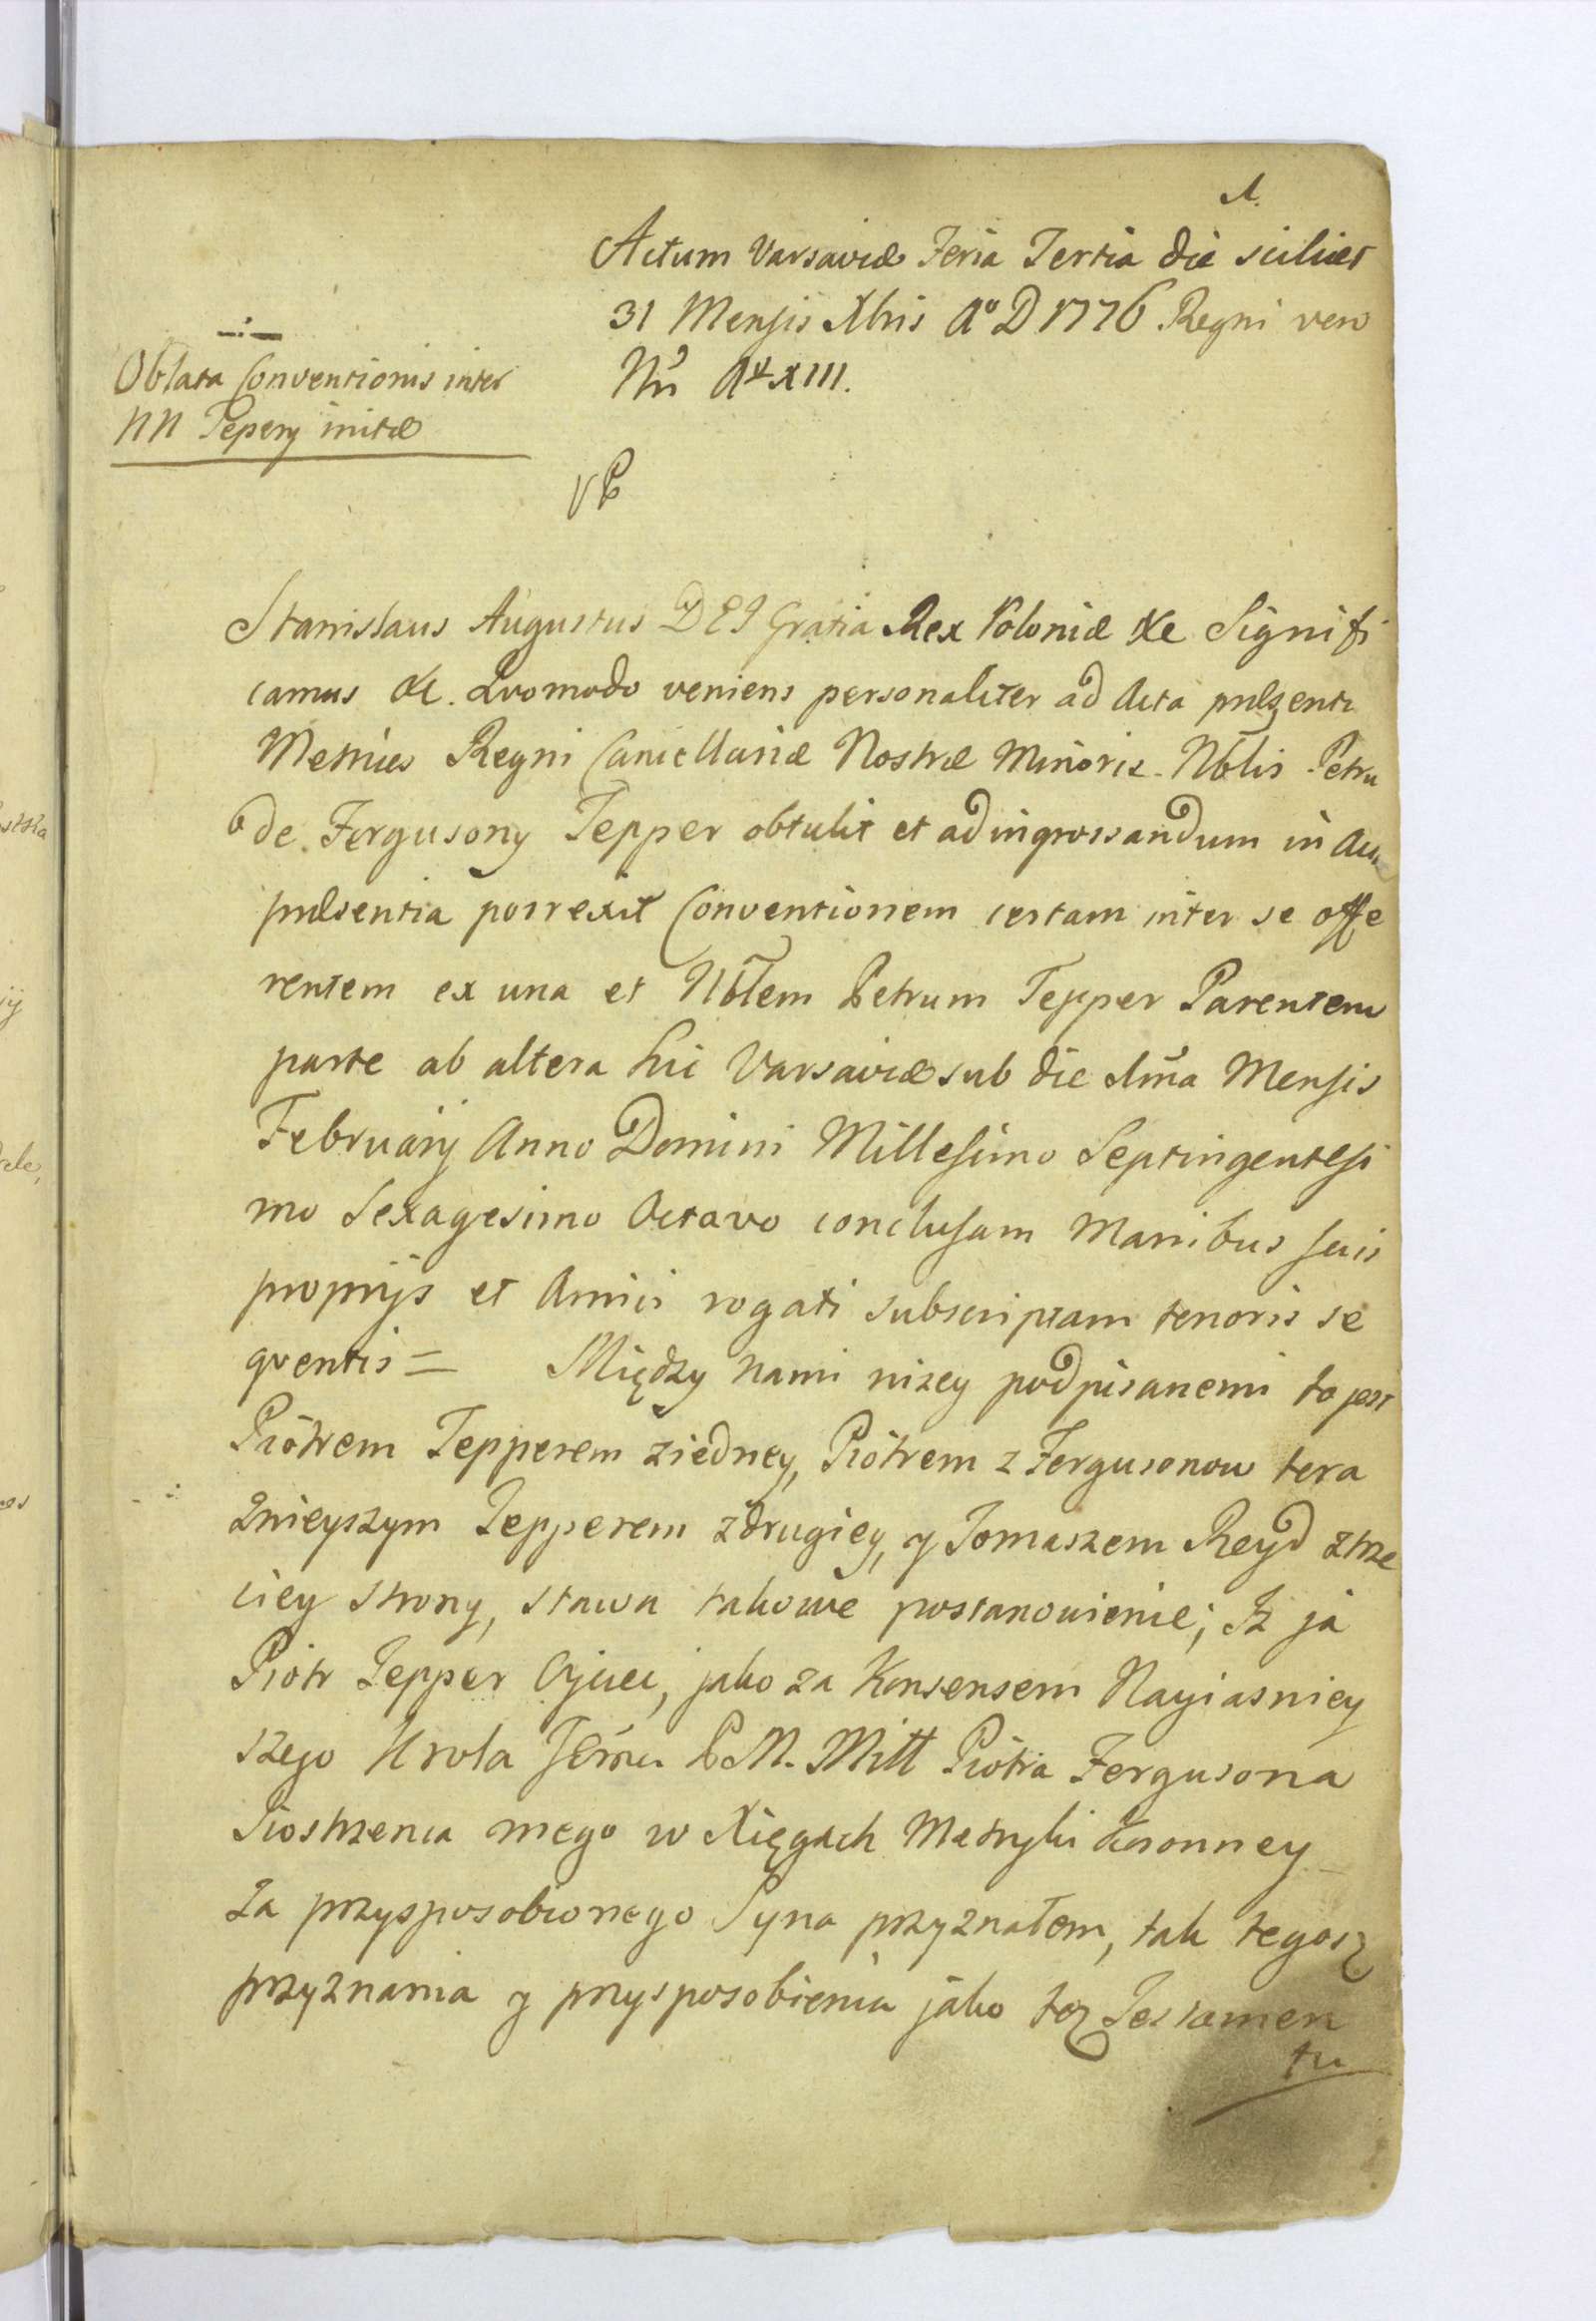 1.
Actum Varsaviæ Feria Tertia die scilicet
31 Mensis Xbris Aº D 1776 Regni vero
Nri Aº XIII.
Oblata Conventionis inter
NN Pepery initæ
Stanislaus Augustus DEI Gratia Rex Poloniæ &c Signifi
camus &c. Quomodo veniens personaliter ad Acta præsenti
Metrices Regni Cancellariæ Nostræ Minoris. Nblis Petru
s de Fergusony Tepper obtulit et ad ingrossandum in Actis
præsentia porrexit Conventionem certam inter se offe
rentem ex una et Nblem Petrum Tepper Parentem
parte ab altera hic Varsaviæ sub die 1ma Mensis
Februarij Anno Domini Millesimo Septingentesi
mo Sexagesimo Octavo conclusam Manibus suis
proprijs et Amici rogati subscriptam tenoris se
quentis = Między nami nizey podpisanemi to jest
Piótrem Tepperem ziedney, Piótrem z Fergusonow tera
znieyszym Tepperem zdrugiey, y Tomaszem Reyd ztrze
ciey strony, stawa takowe postanowienie; Iz ja
Piotr Tepper Ojciec, jako za Konsensem Nayiasniey
szego Krola Jgmci P.M. Mitt Piótra Fergusona
Siostrzenca mego w Xięgach Metryki Koronney
za przysposobionego Syna przyznałem, tak tegosz
przyznania y przysposobienia jako tez Testamen
tu